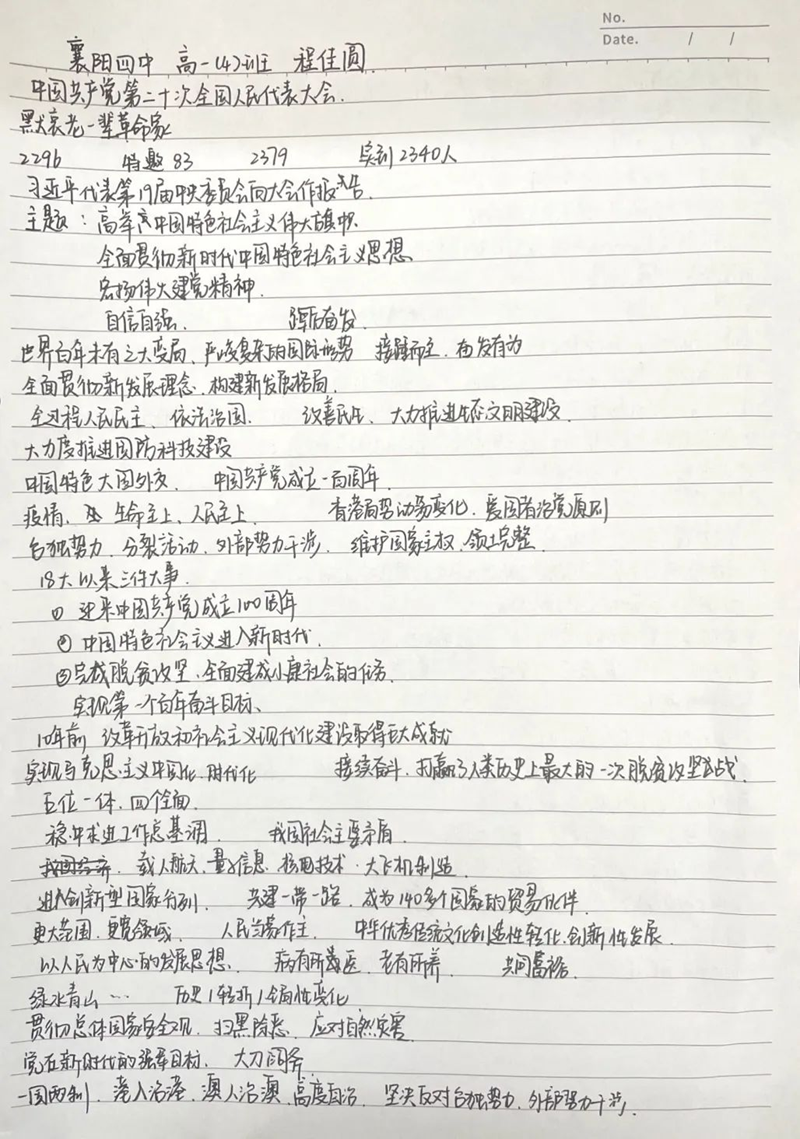 No.
Date. / /
襄阳四中 高一(4)班 程佳圆
中国共产党第二十次全国人民代表大会.
默哀老一辈革命家
2296 特邀 83 2379 实到 2340人
习近平代表第19届中央委员会向大会作报告.
主题：高举中国特色社会主义伟大旗帜
全面贯彻新时代中国特色社会主义思想.
弘扬伟大建党精神.
自信自强. 踔厉奋发.
世界百年未有之大变局、严峻复杂的国际形势 接踵而至. 奋发有为
全面贯彻新发展理念. 构建新发展格局.
全过程人民民主、依法治国. 改善民生、大力推进生态文明建设.
大力度推进国防科技建设
中国特色大国外交. 中国共产党成立一百周年.
疫情、生命至上、人民至上. 香港局势动荡变化. 爱国者治党原则
台独势力. 分裂活动. 外部势力干涉. 维护国家主权、领土完整.
18大以来三件大事.
① 迎来中国共产党成立100周年
② 中国特色社会主义进入新时代.
③ 完成脱贫攻坚、全面建成小康社会的任务.
实现第一个百年奋斗目标、
10年前 改革开放和社会主义现代化建设取得巨大成就
实现马克思主义中国化.时代化 接续奋斗. 打赢了人类历史上最大的一次脱贫攻坚战.
五位一体. 四个全面.
稳中求进工作总基调. 我国社会主要矛盾.
载人航天、量子信息. 核电技术·大飞机制造
进入创新型国家行列. 共建一带一路. 成为140多个国家的贸易伙伴.
更大范围. 更宽领域. 人民当家作主. 中华优秀传统文化创造性转化.创新性发展.
以人民为中心的发展思想. 病有所医. 老有所养. 共同富裕.
绿水青山 … 历史/转折/全局性变化
贯彻总体国家安全观. 扫黑除恶. 应对自然灾害
党在新时代的强军目标. 大刀阔斧.
一国两制. 港人治港. 澳人治澳. 高度自治. 坚决反对台独势力. 外部势力干涉.